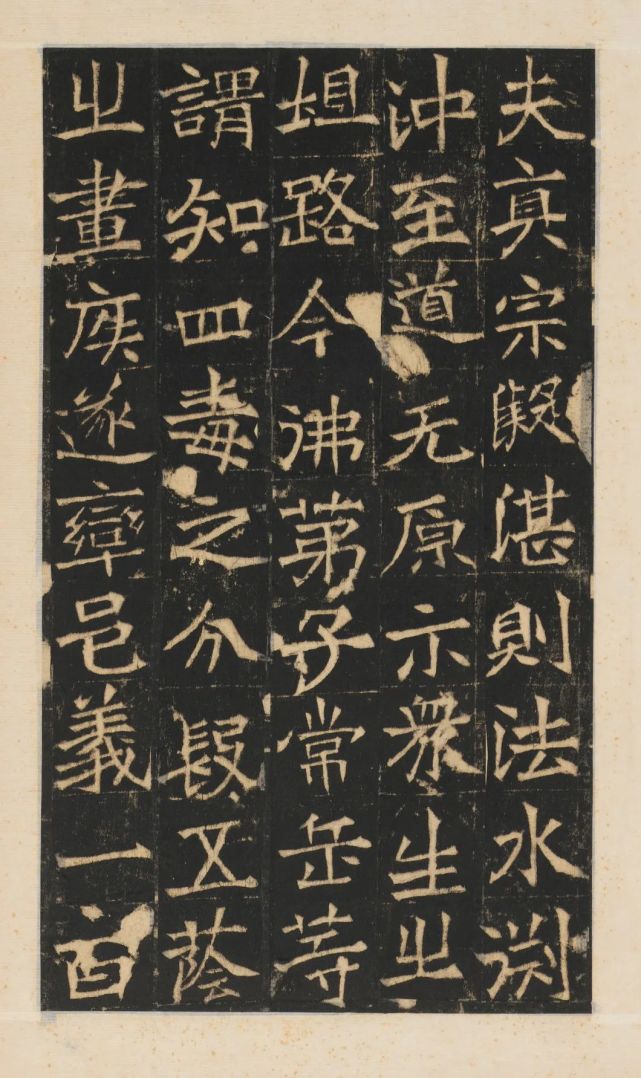 夫真宗凝湛則法水渕
沖至道无原示衆生之
坦路今佛苐子常岳䓁
謂知四毒之分段五蔭
之畫疾遂率邑義一百